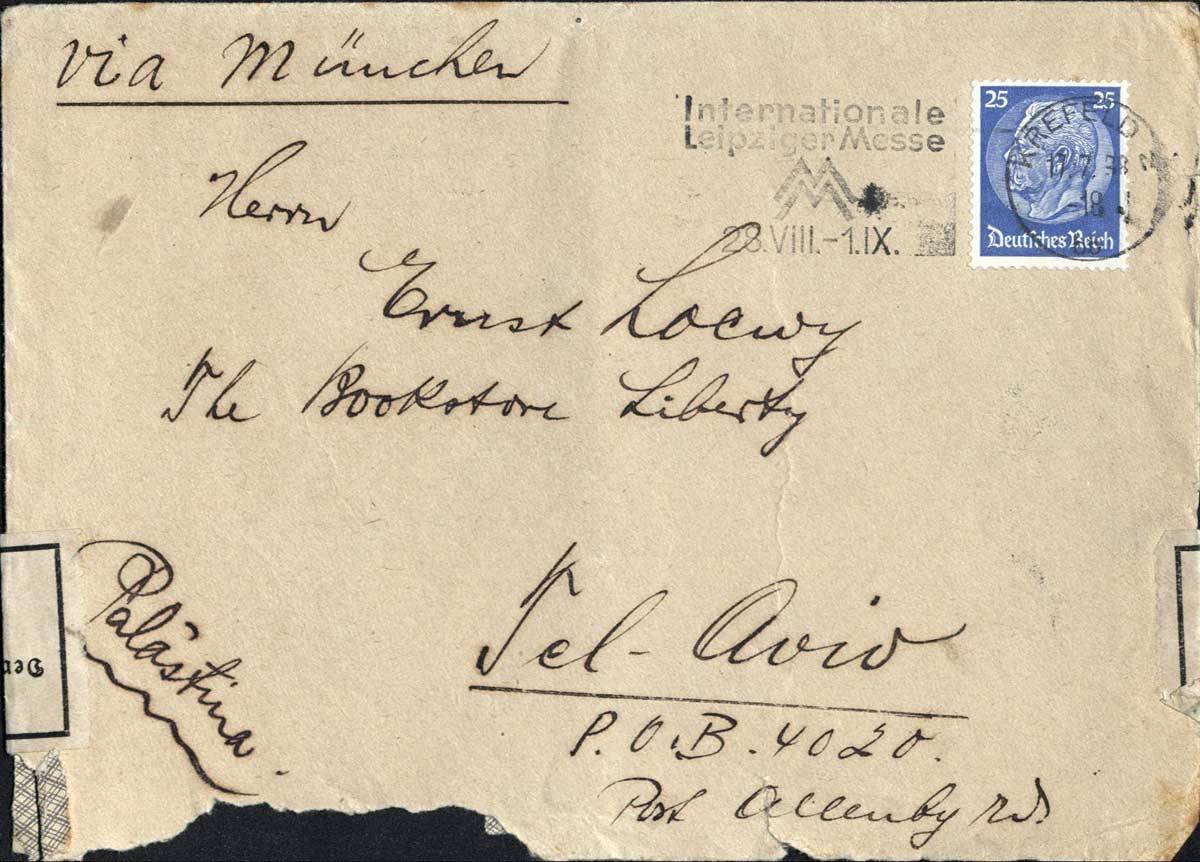 via München
Internationale
Leipziger Messe
28.VIII.-1.IX.
25 25
KREFELD 2
17.7.
-18
Deutsches Reich
Herrn
Ernst Loewy
The Bookstore Liberty
Palästina.
Tel-Aviv
P.O.B. 4020.
Post Allenby Rd.